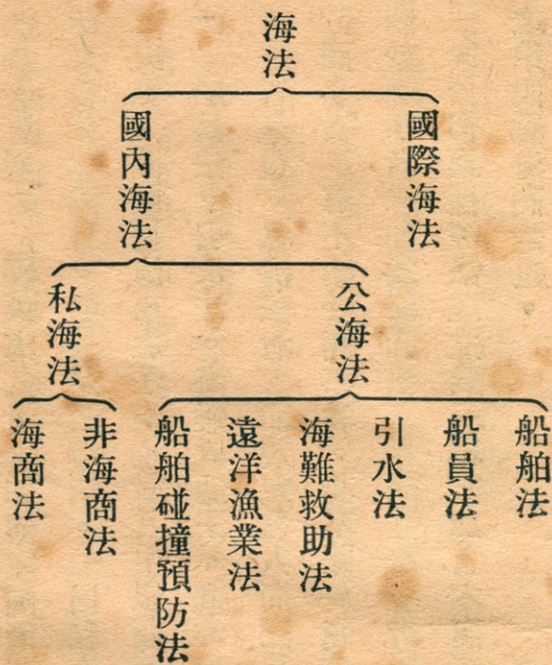 海法
國際海法
國內海法
公海法
私海法
船舶法
船員法
引水法
海難救助法
遠洋漁業法
船舶碰撞預防法
非海商法
海商法